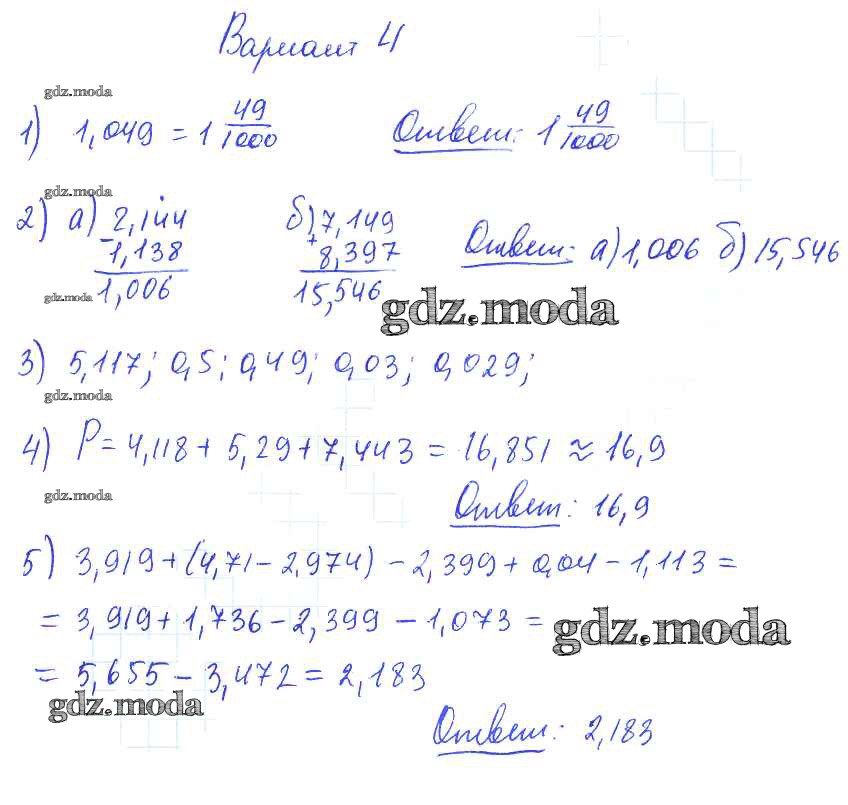 Вариант 4
gdz.moda
1) 1,049 = 1 49/1000 Ответ: 1 49/1000
gdz.moda
2) а) 2,144 б) 7,149
- 1,138 + 8,397 Ответ: а) 1,006 б) 15,546
gdz.moda 1,006 15,546
gdz.moda
3) 5,117; 0,5; 0,49; 0,03; 0,029;
gdz.moda
4) P = 4,118 + 5,29 + 7,443 = 16,851 ≈ 16,9
gdz.moda
Ответ: 16,9
5) 3,919 + (4,71 - 2,974) - 2,399 + 0,04 - 1,113 =
= 3,919 + 1,736 - 2,399 - 1,073 =
gdz.moda
= 5,655 - 3,472 = 2,183
gdz.moda
Ответ: 2,183